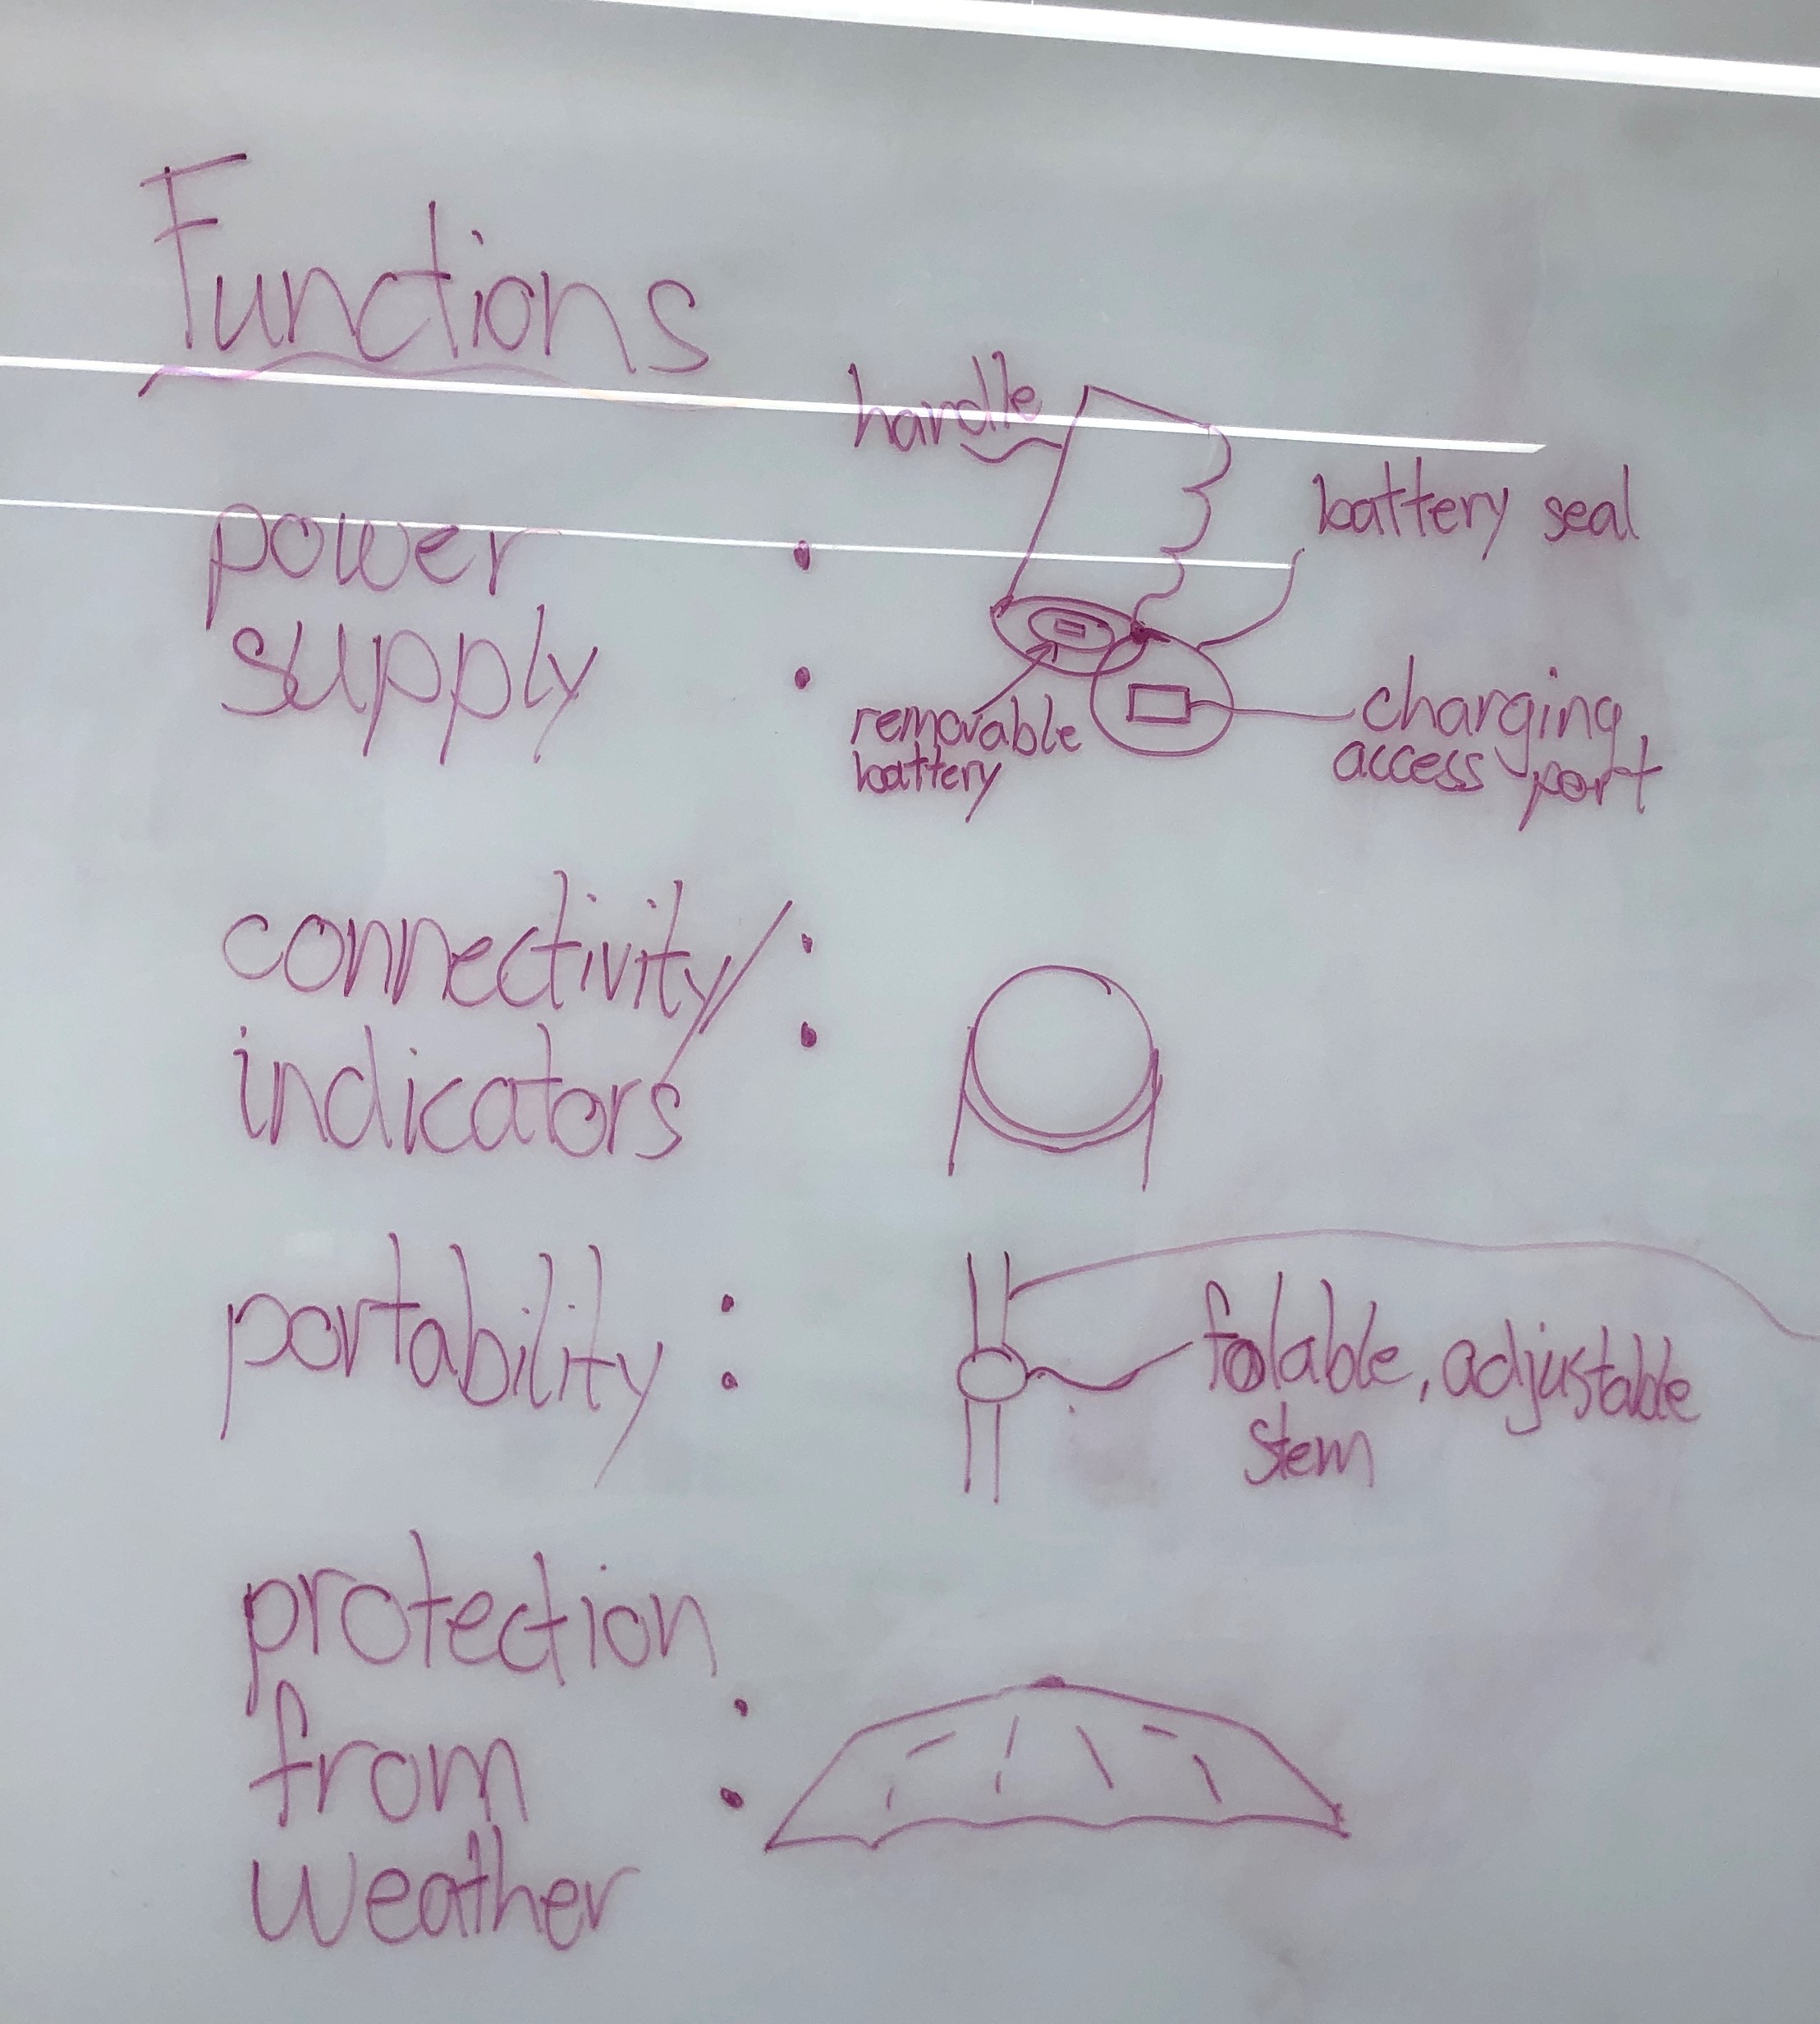 Functions
handle
power
supply :
battery seal
removable
battery
charging
access port
connectivity/ :
indicators
portability :
folable, adjustable
stem
protection
from :
weather